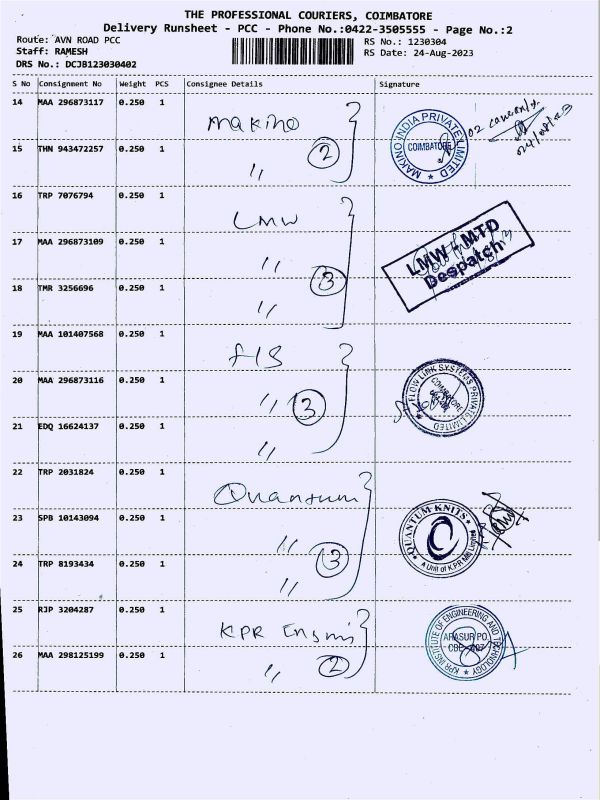 THE PROFESSIONAL COURIERS, COIMBATORE
Delivery Runsheet - PCC - Phone No.:0422-3505555 - Page No.:2
Route: AVN ROAD PCC
RS No.: 1230304
Staff: RAMESH
RS Date: 24-Aug-2023
DRS No.: DCJB123030402
S No Consignment No Weight PCS Consignee Details Signature
14 MAA 296873117 0.250 1
Makino
2
MAKINO INDIA PRIVATE LIMITED
COIMBATORE
15 THN 943472257 0.250 1
"
16 TRP 7076794 0.250 1
LMW
17 MAA 296873109 0.250 1
" 3
LMW - MTD
Despatch
18 TMR 3256696 0.250 1
"
19 MAA 101407568 0.250 1
20 MAA 296873116 0.250 1
" 3
FLOW LINK SYSTEMS PRIVATE LIMITED
COIMBATORE
21 EDQ 16624137 0.250 1
"
22 TRP 2031824 0.250 1
Quantum
23 SPB 10143094 0.250 1
" 3
QUANTUM KNITS
A Unit of K.P.R. Mill Limited
24 TRP 8193434 0.250 1
"
25 RJP 3204287 0.250 1
KPR
KPR INSTITUTE OF ENGINEERING AND TECHNOLOGY
ARASUR PO.
26 MAA 298125199 0.250 1
" 2